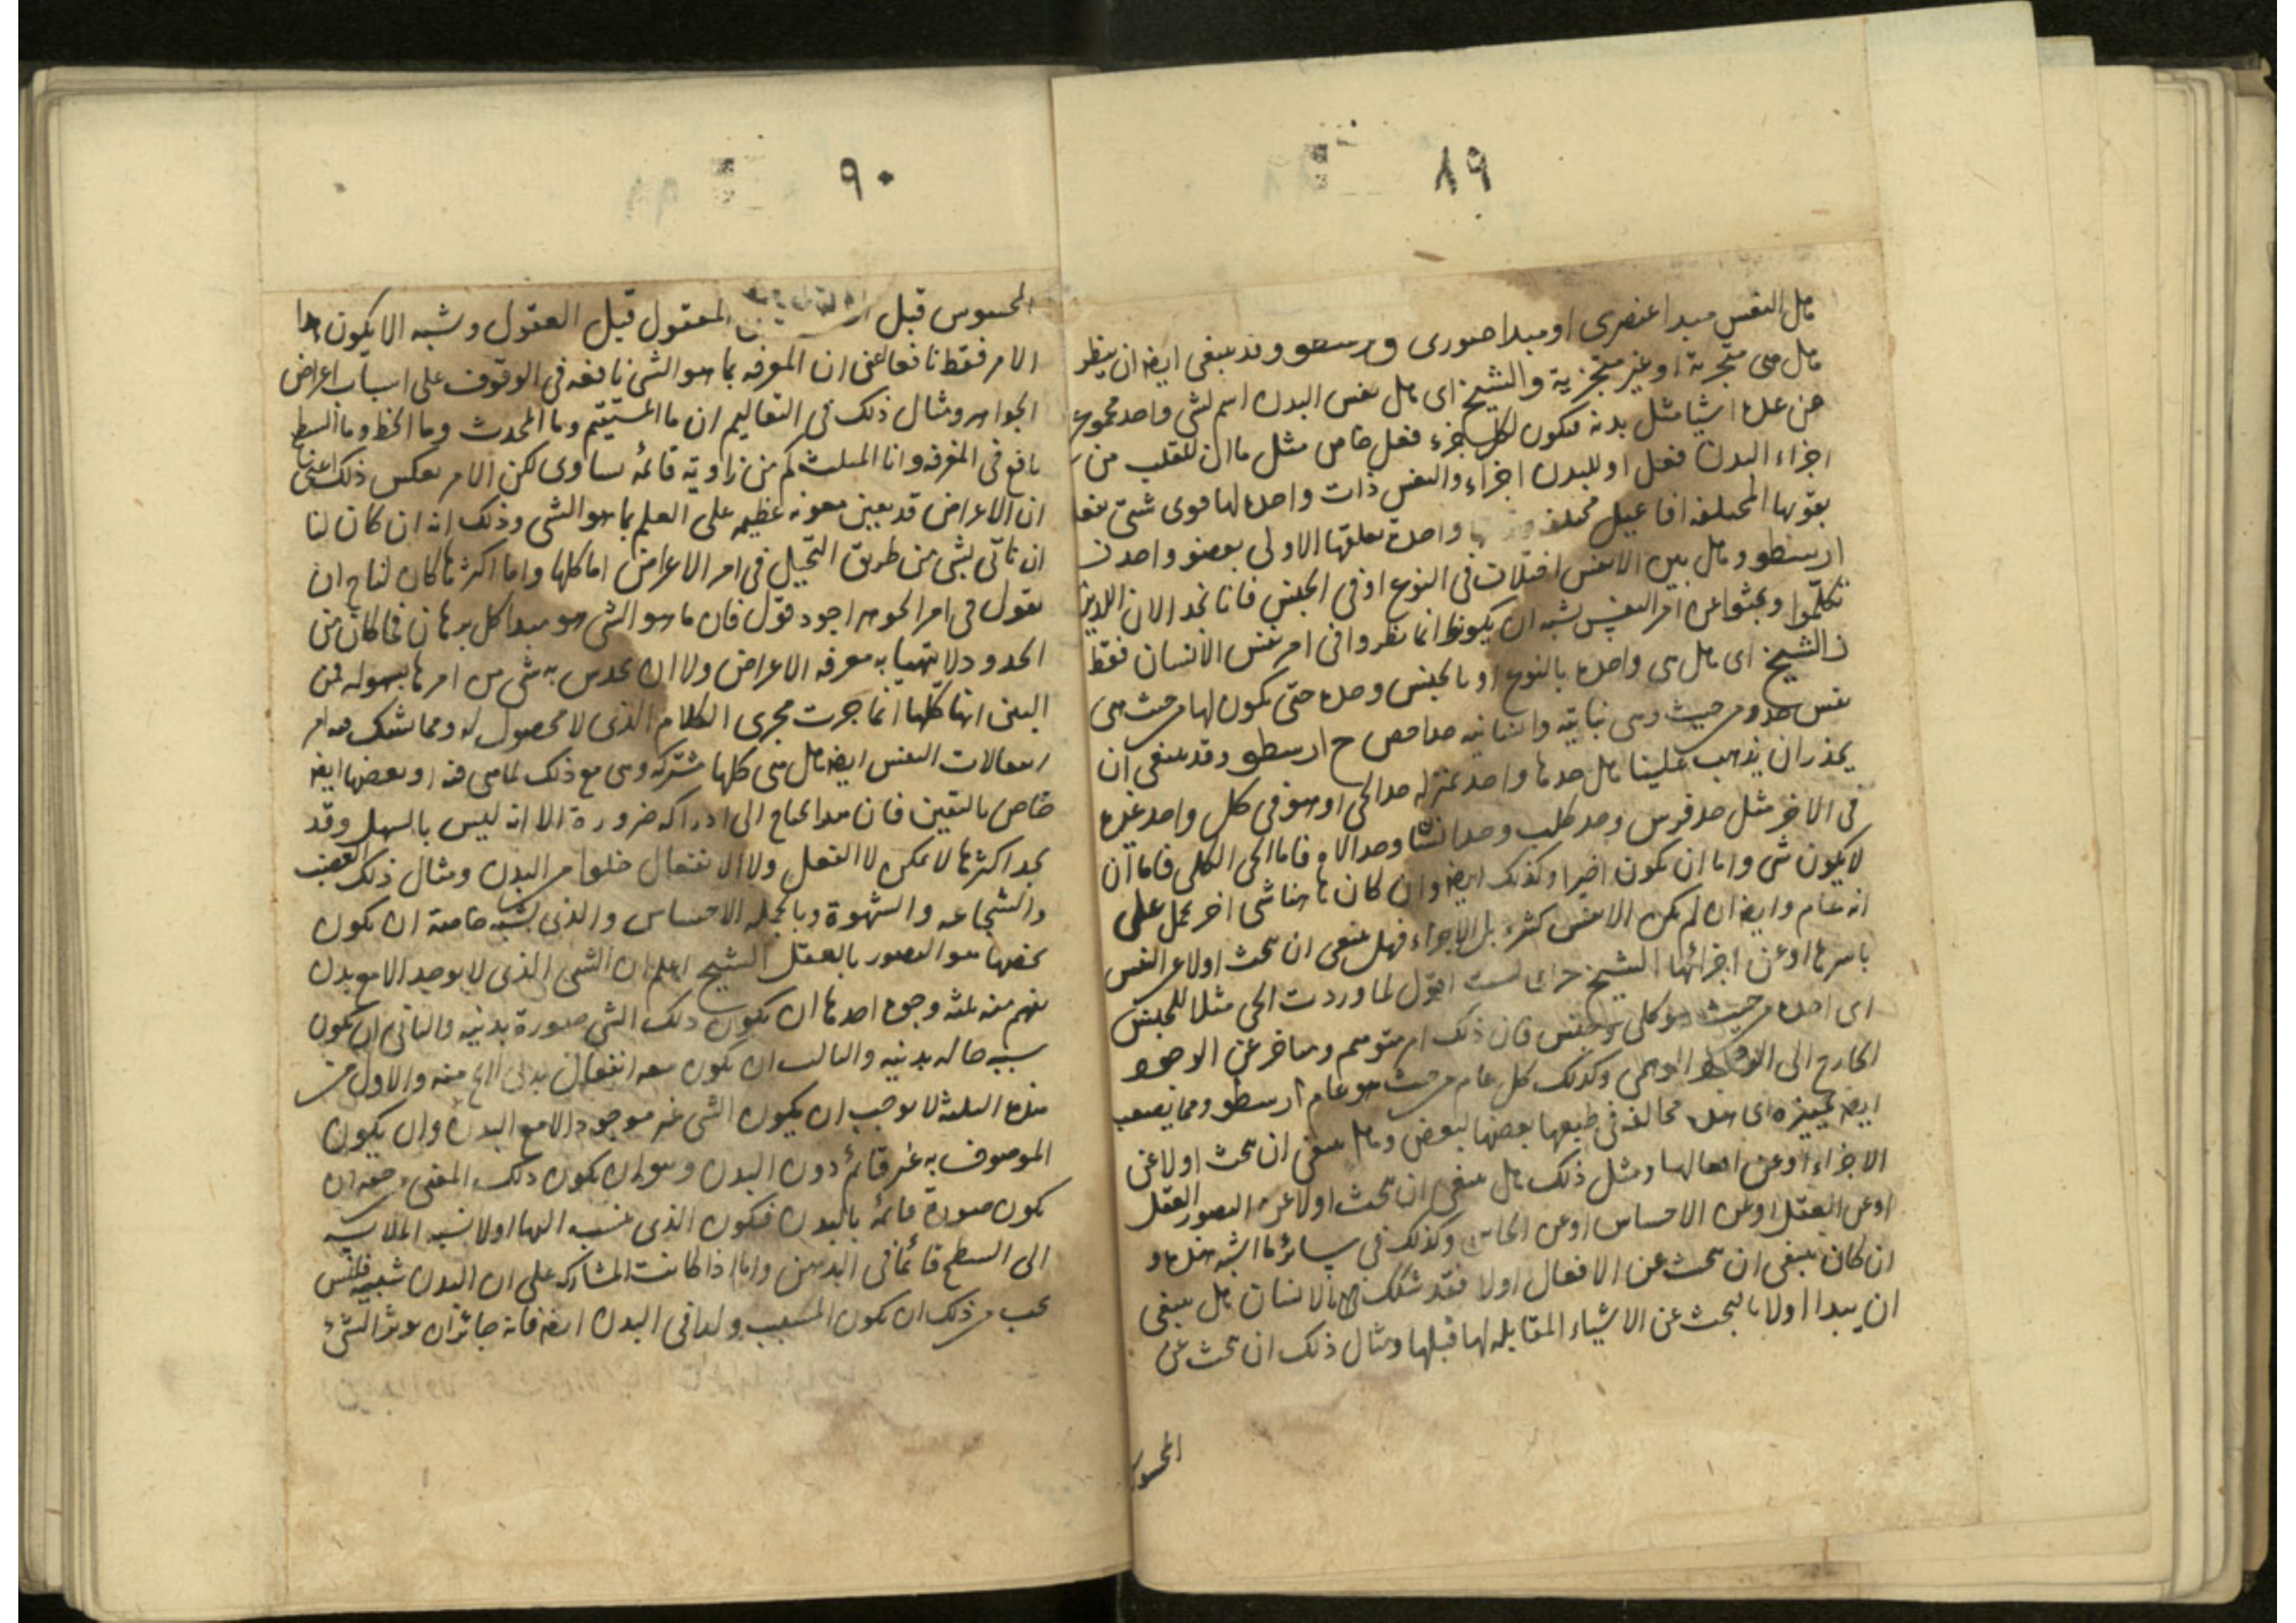 ٨٩
هل النفس مبدا عنصرى او مبدا صورى ارسطو وقد ينبغى ايضا ان ينظر
هل هى متجزية او غير متجزية والشيخ اى هل نفس البدن اسم لشى واحد مجموع
من عدة اشيا مثل بدنه فيكون لكل جزء فعل خاص مثل ما ان للقلب من
اجزاء البدن فعل او للبدن اجزاء والنفس ذات واحدة لها قوى شتى تفعل
بقوتها المختلفة افاعيل مختلفة واحدة تعلقها الاولى بعضو واحد
ارسطو وهل بين الانفس اختلاف فى النوع او فى الجنس فانا نجد الان الذين
تكلموا وبحثوا عن امر النفس يشبه ان يكونوا انما نظروا فى امر نفس الانسان فقط
الشيخ اى هل هى واحدة بالنوع او بالجنس وحده حتى يكون لها من حيث هى
نفس حد ومن حيث هى نباتية وانسانية حد اخص ارسطو وقد ينبغى ان
يحذر ان يذهب علينا هل حدها واحد بمنزلة حد الحى او هو فى كل واحد غيره
فى الاخر مثل حد فرس وحد كلب وحد انسان وحد الاه فاما الحى الكلى فاما ان
لا يكون شى واما ان يكون اخيرا وكذلك ايضا وان كان هاهنا شى اخر يحمل على
انه عام وايضا ان لم يكن الانفس كثيرة بل الاجزاء فهل ينبغى ان نبحث اولا عن النفس
باسرها او عن اجزائها الشيخ لست اقول لما وردت الحى مثلا للجنس
اى احده من حيث هو كلى وجنس فان ذلك امر متوهم ومتاخر عن الوجود
الخارج الى الوهمى وكذلك كل عام من حيث هو عام ارسطو ومما يصعب
ايضا تمييزه اى هذه مخالفة فى طبعها بعضها لبعض وهل ينبغى ان نبحث اولا عن
الاجزاء او عن افعالها ومثل ذلك هل ينبغى ان نبحث اولا عن التصور بالعقل
او عن العقل او عن الاحساس او عن الحاس وكذلك فى سائر ما اشبه هذه و
ان كان ينبغى ان نبحث عن الافعال اولا فقد شكك الانسان هل ينبغى
ان يبدا اولا بالبحث عن الاشياء المقابلة لها قبلها ومثال ذلك ان نبحث عن
المحسوس
٩٠
المحسوس قبل المعقول قبل العقول ويشبه الا يكون هذا
الامر فقط نافعا اعنى ان المعرفة بما هو الشى نافعة فى الوقوف على اسباب اعراض
الجواهر ومثال ذلك فى التعاليم ان ما المستقيم وما المحدث وما الخط وما السطح
نافع فى المعرفة وانا المثلث كم من زاوية قائمة يساوى لكن الامر بعكس ذلك اعنى
ان الاعراض قد يعين معونة عظيمة على العلم بما هو الشى وذلك انه ان كان لنا
ان ناتى بشى من طريق التخيل فى امر الاعراض اما كلها واما اكثرها كان لنا ح ان
نقول فى امر الجوهر اجود قول فان ما هو الشى هو مبدا كل برهان فما كان من
الحدود لا يتهيا به معرفة الاعراض ولا ان يحدس به شى من امرها بسهولة فمن
البين انها كلها انما جرت مجرى الكلام الذى لا محصول له ومما شك فيه امر
انفعالات النفس ايضا هل هى كلها مشتركة وهى مع ذلك لما هى فيه او بعضها ايضا
خاص بالنفس فان هذا يحتاج الى ادراكه ضرورة الا انه ليس بالسهل وقد
نجد اكثرها لا يمكن لا الفعل ولا الانفعال خلوا من البدن ومثال ذلك الغضب
والشجاعة والشهوة وبالجملة الاحساس والذى يشبه خاصة ان يكون
يخصها هو التصور بالعقل الشيخ اعلم ان الشى الذى لا يوجد الا مع بدن
يفهم منه ثلثة وجوه احدها ان يكون ذلك الشى صورة بدنية والثانى ان يكون
سببه حالة بدنية والثالث ان يكون معه انفعال بدنى والاول من
هذه الثلثة لا يوجب ان يكون الشى غير موجود الا مع البدن وان يكون
الموصوف به غير قائم دون البدن وهو ان يكون ذلك المعنى
يكون صورة قائمة بالبدن فيكون الذى ينسب اليها اولا نسبة الملاسة
الى السطح قائما فى البدن واما اذا كانت المشاركة على ان البدن سببه فليس
يجب من ذلك ان يكون المسبب ولدا فى البدن ايضا فانه جائز ان يوثر الشى